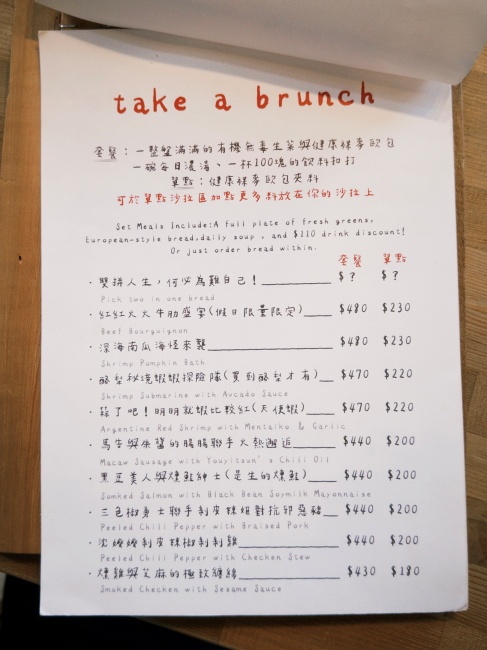 take a brunch
套餐：一整盤滿滿的有機無毒生菜與健康裸麥歐包
一碗每日濃湯、一杯100塊的飲料扣打
單點：健康裸麥歐包夾料
可於單點沙拉區加點更多料放在你的沙拉上
Set Meals Include:A full plate of fresh greens,
European-style bread,daily soup , and $110 drink discount!
Or just order bread within.
套餐 單點
· 雙拼人生，何必為難自己！ $? $?
Pick two in one bread
· 紅紅火火牛肋盛宴(假日限量限定) $480 $230
Beef Bourguignon
· 深海南瓜海怪來襲 $480 $230
Shrimp Pumpkin Bath
· 酪梨秘境蝦蝦探險隊(買到酪梨才有) $470 $220
Shrimp Submarine with Avcado Sauce
· 蒜了吧！明明就蝦比較紅(天使蝦) $470 $220
Argentine Red Shrimp with Mentaiko & Garlic
· 馬告與 的腸腸聯手火熱邂逅 $440 $200
Macaw Sausage with Youyitsun's Chili Oil
· 黑豆美人與燻鮭紳士(是生的燻鮭) $440 $200
Somked Salmon with Black Bean Soymilk Mayonnaise
· 三色椒勇士聯手剝皮辣妞對抗邪惡豬 $440 $200
Peeled Chili Pepper with Braised Pork
· 沈嫽嫽剝皮辣椒剝剝雞 $440 $200
Peeled Chili Pepper with Checken Stew
· 燻雞與芝麻的極致纏綿 $430 $180
Smoked Checken with Sesame Sauce